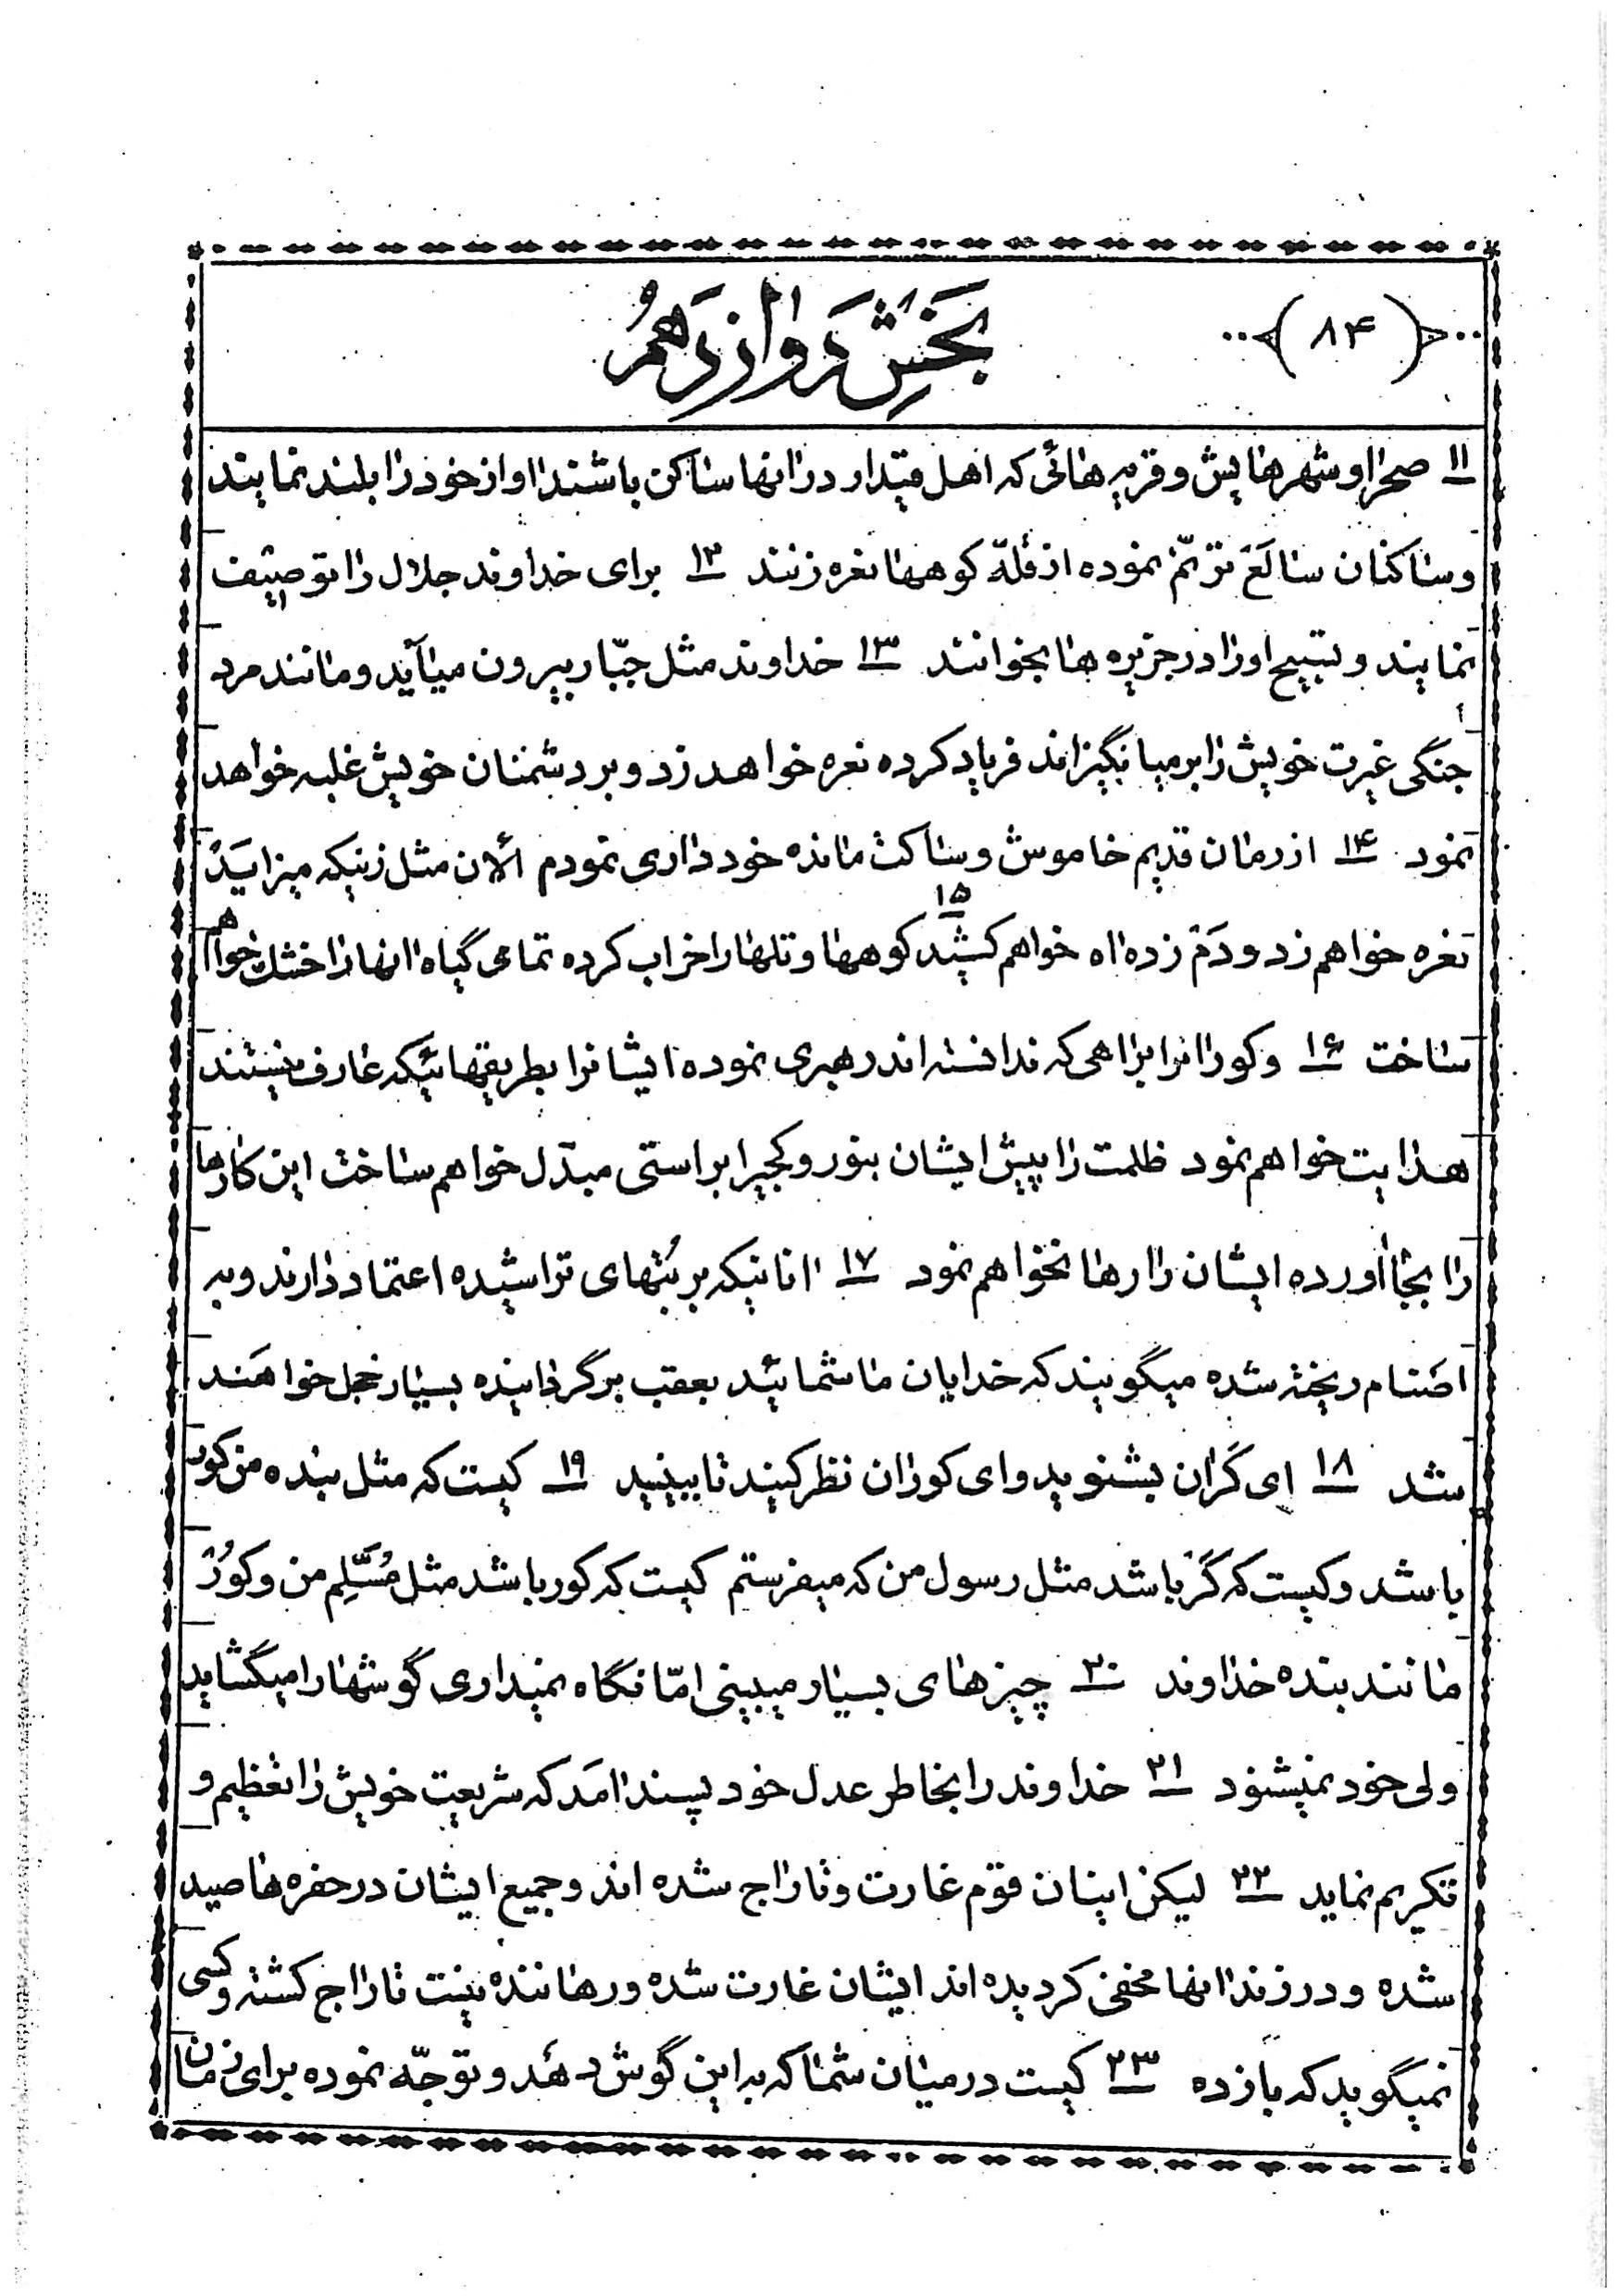 (۸۴)
بخش دوازدهم
۱۱ صحرا و شهرهایش و قریه هائی که اهل قیدار درانها ساکن باشند اواز خود را بلند نمایند
و ساکنان سالَعَ ترنّم نموده از قلّه کوهها نعره زنند ۱۲ برای خداوند جلال را توصیف
نمایند و تسبیح او را در جزیره ها بخوانند ۱۳ خداوند مثل جبّار بیرون میآید و مانند مرد
جنگی غیرت خویش را برمیانگیزاند فریاد کرده نعره خواهد زد و بر دشمنان خویش غلبه خواهد
نمود ۱۴ از زمان قدیم خاموش و ساکت مانده خود داری نمودم الأن مثل زنیکه میزاید
نعره خواهم زد و دَمْ زده اه خواهم کشید ۱۵ کوهها و تلها را خراب کرده تمامی گیاه انها را خشک خواهم
ساخت ۱۶ و کورانرا براهی که ندانسته اند رهبری نموده ایشانرا بطریقهائیکه عارف نیستند
هدایت خواهم نمود ظلمت را پیش ایشان بنور و کجیرا براستی مبدّل خواهم ساخت این کارها
را بجا اورده ایشان را رها نخواهم نمود ۱۷ انانیکه بر بُتهای تراشیده اعتماد دارند و به
اصنام ریخته شده میگویند که خدایان ما شمائید بعقب برگردانیده بسیار خجل خواهند
شد ۱۸ ای کَران بشنوید و ای کوران نظر کنید تا ببینید ۱۹ کیست که مثل بنده من کور
باشد و کیست که کَر باشد مثل رسول من که میفرستم کیست که کور باشد مثل مُسَلِّم من و کور
مانند بنده خداوند ۲۰ چیزهای بسیار میبینی امّا نگاه نمیداری گوشها را میگشاید
ولی خود نمیشنود ۲۱ خداوند را بخاطر عدل خود پسند امَد که شریعت خویش را تعظیم و
تکریم نماید ۲۲ لیکن اینان قوم غارت و تاراج شده اند و جمیع ایشان در حفره ها صید
شده و در زندانها مخفی گردیده اند ایشان غارت شده و رهاننده نیست تاراج گشته و کسی
نمیگوید که باز ده ۲۳ کیست در میان شما که به این گوش دهد و توجّه نموده برای زمان